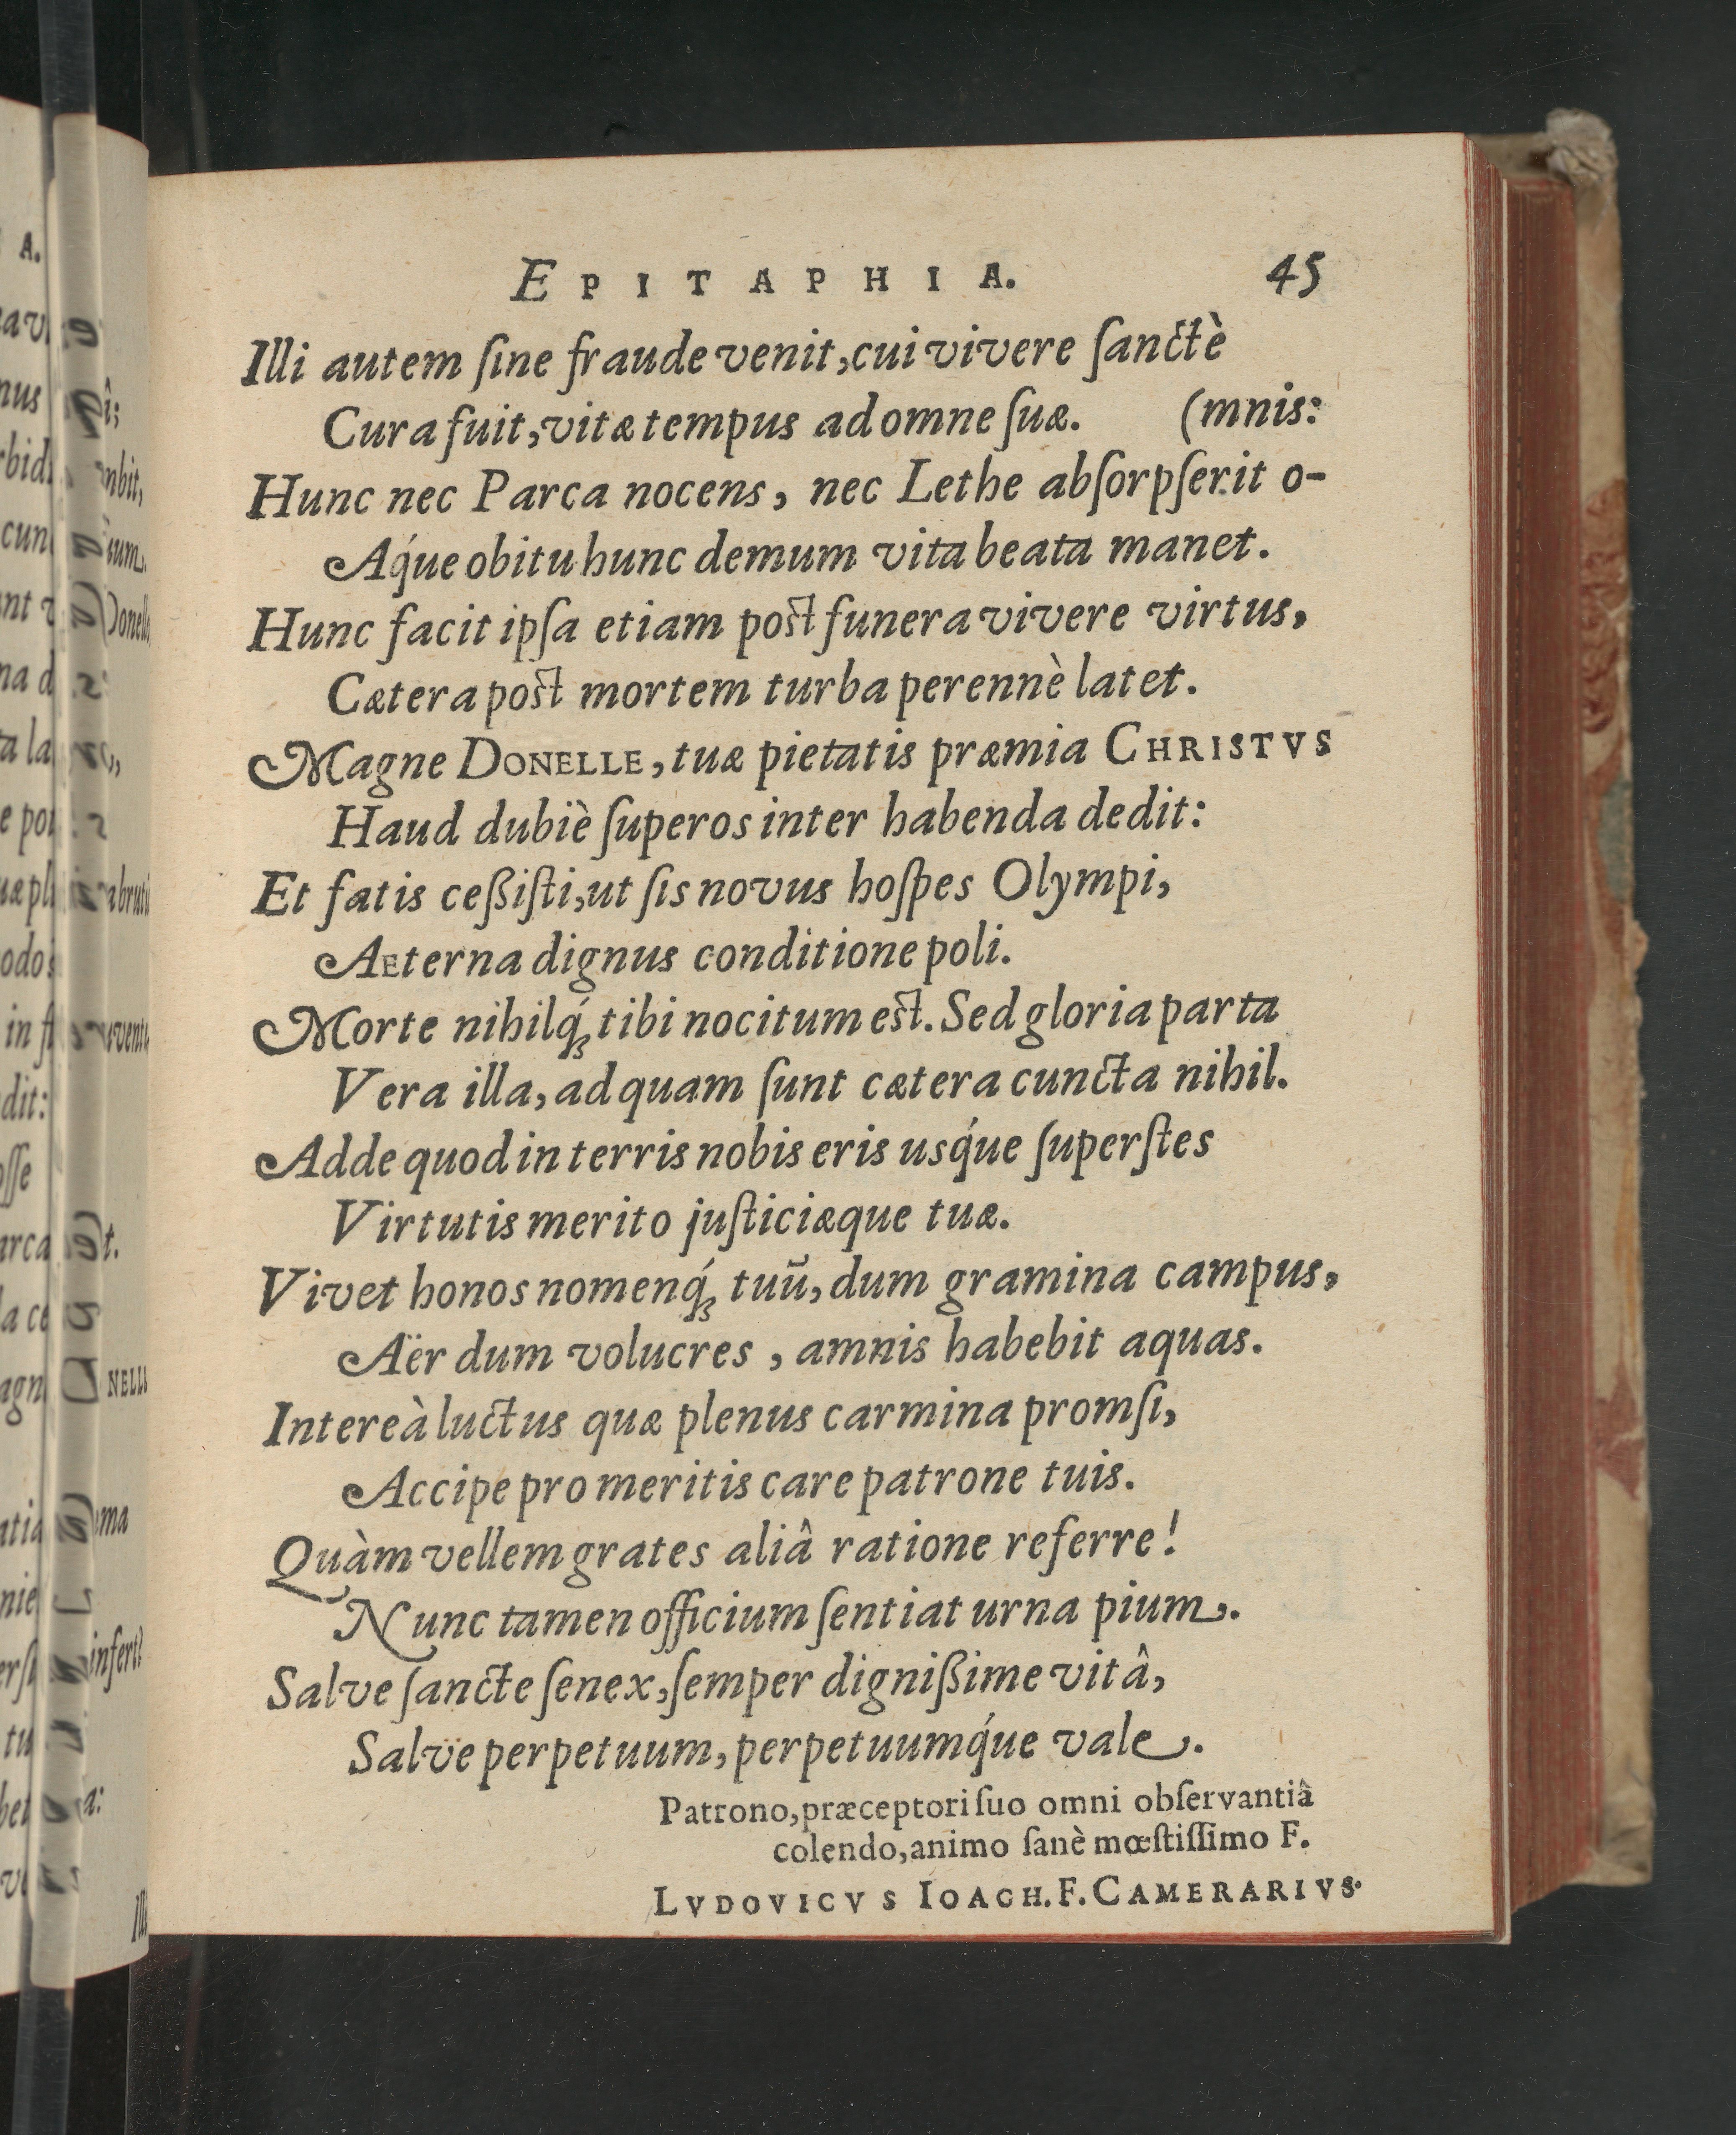 EPITAPHIA. 45
Illi autem ſine fraude venit, cui vivere ſanctè
Cura fuit, vitæ tempus ad omne ſuæ. (mnis:
Hunc nec Parca nocens, nec Lethe abſorpſerit o-
Aq́ue obitu hunc demum vita beata manet.
Hunc facit ipſa etiam post funera vivere virtus,
Cætera post mortem turba perennè latet.
Magne DONELLE, tuæ pietatis præmia CHRISTVS
Haud dubiè ſuperos inter habenda dedit:
Et fatis ceßiſti, ut ſis novus hoſpes Olympi,
Aeterna dignus conditione poli.
Morte nihilq́; tibi nocitum est. Sed gloria parta
Vera illa, ad quam ſunt cætera cuncta nihil.
Adde quod in terris nobis eris usq́ue ſuperſtes
Virtutis merito juſticiæque tuæ.
Vivet honos nomenq́; tuū, dum gramina campus,
Aër dum volucres, amnis habebit aquas.
Intereà luctus quæ plenus carmina promſi,
Accipe pro meritis care patrone tuis.
Quàm vellem grates aliâ ratione referre!
Nunc tamen officium ſentiat urna pium.
Salve ſancte ſenex, ſemper dignißime vitâ,
Salve perpetuum, perpetuumq́ue vale.
Patrono, præceptori ſuo omni obſervantiâ
colendo, animo ſanè mœſtiſſimo F.
LVDOVICVS IOACH. F. CAMERARIVS.